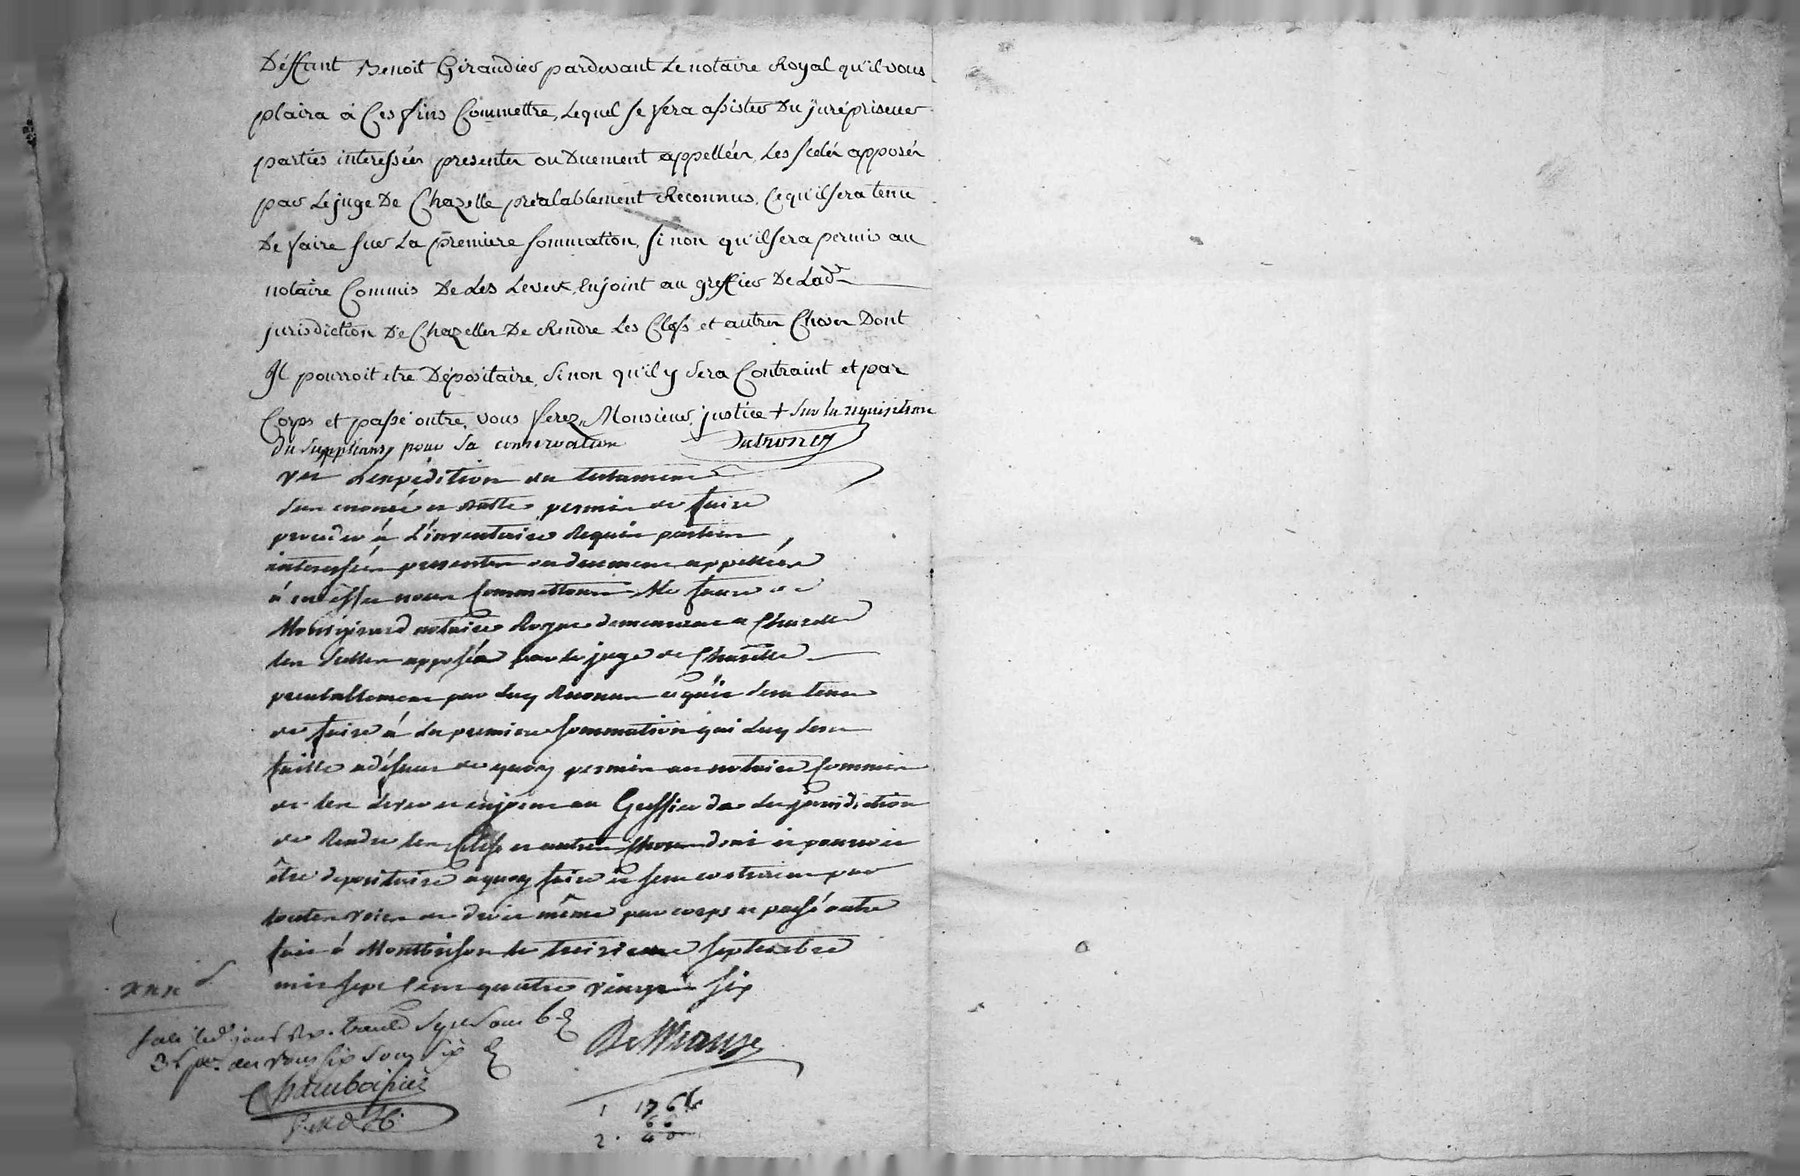 Déffunt Benoit Giraudier pardevant Le notaire Royal qu'il vous
plaira à Ces fins Commettre, Lequel se fera assister Du juré priseur
parties interessées presentes ou Duement appellées, Les scelés apposés
par Le juge De Chazelle préalablement Reconnus, Ce qu'il sera tenu
De faire sur La premiere sommation, si non qu'il sera permis au
notaire Commis De Les Lever, Enjoint au greffier De Lad.
jurisdiction De Chazelles De Rendre Les Clefs et autres Choses Dont
Il pourroit etre Dépositaire, Sinon qu'il y sera Contraint et par
Corps et passé outre, vous ferez, Monsieur, justice + sur la requisition
du suppliant pour sa conservation
Veu L'expédition du testament
permis de faire
proceder à L'inventaire Requis parties
interessées presentes ou duement appellées
à cet effet nous Commettons Me faure de
Montgirard notaire Royal demeurant a Chazelle
les scellés apposés par le juge de Chazelle
préalablement par Luy Reconnus ce qu'il sera tenu
de faire à la premiere sommation qui Luy sera
faitte a déffaut de quoy permis au notaire Commis
de les Lever et enjoint au Greffier de la jurisdiction
de Rendre les Clefs et autres Choses dont il pourroit
être depositaire a quoy faire il sera contraint par
toutes voies de droit même par corps et passé outre
fait à Montbrison le treizieme septembre
mil sept Cent quatre vingt six
jours
sept sous 6 d
six sous six d
Chamboissier
1 1766
66
2. 40